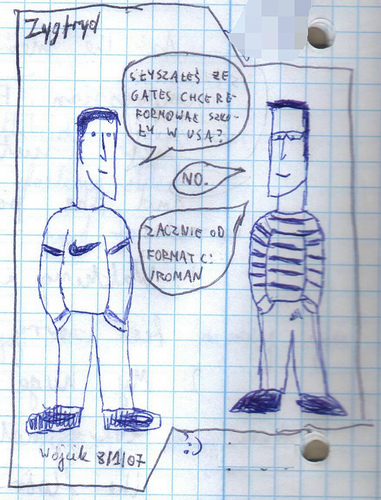 Zygfryd
SŁYSZAŁEŚ ŻE
GATES CHCE RE-
FORMOWAĆ SZKO-
ŁY W USA?
NO.
ZACZNIE OD
FORMAT C:
/ROMAN
Wójcik 8/1/07
:)